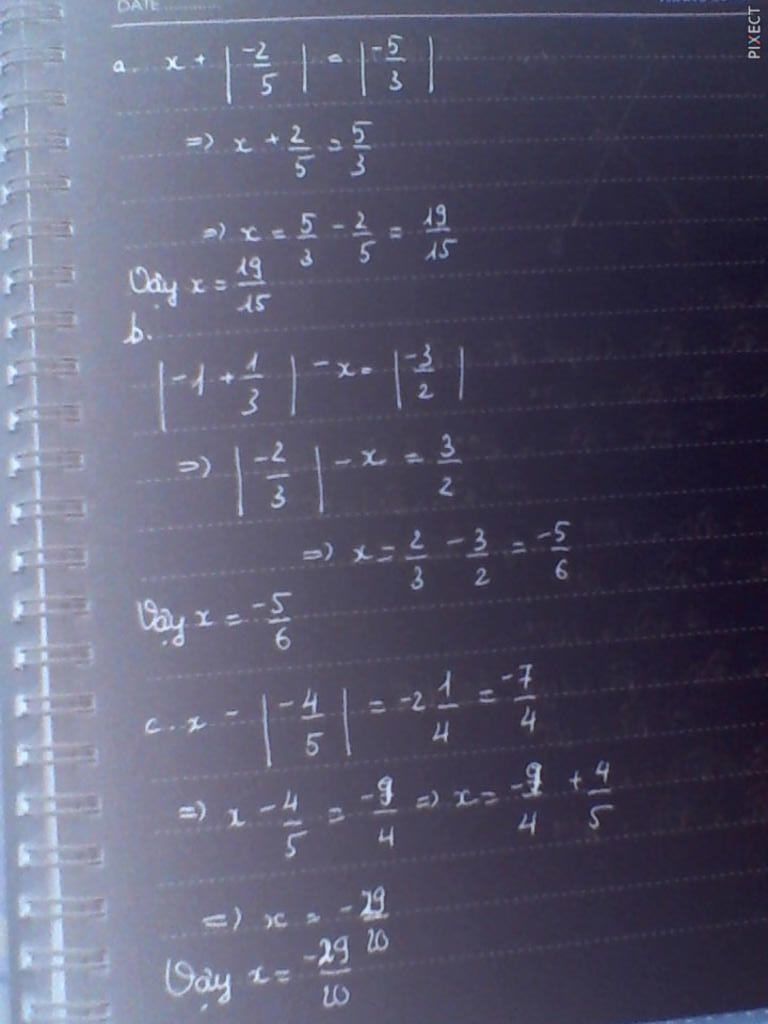 PIXECT
DATE ............
a. x + |-2/5| = |-5/3|
=> x + 2/5 = 5/3
=> x = 5/3 - 2/5 = 19/15
Vậy x = 19/15
b.
|-1 + 1/3| - x = |-3/2|
=> |-2/3| - x = 3/2
=> x = 2/3 - 3/2 = -5/6
Vậy x = -5/6
c. x - |-4/5| = -2 1/4 = -7/4
=> x - 4/5 = -9/4 => x = -9/4 + 4/5
=> x = -29/20
Vậy x = -29/20